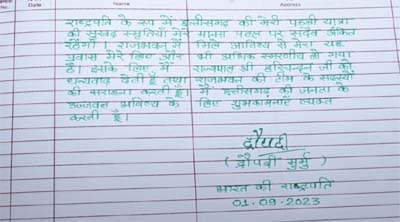 Name
Address
राष्ट्रपति के रूप में छत्तीसगढ़ की मेरी पहली यात्रा
की सुखद स्मृतियाँ मेरे मानस पटल पर सदैव अंकित
रहेंगी। राजभवन में मिले आतिथ्य से मेरा यह
प्रवास मेरे लिए और भी अधिक स्मरणीय हो गया
है। इसके लिए, मैं राज्यपाल श्री हरिचन्दन जी को
धन्यवाद देती हूँ तथा राजभवन की टीम के सदस्यों
की सराहना करती हूँ। मैं छत्तीसगढ़ की जनता के
उज्ज्वल भविष्य के लिए शुभकामनाएँ व्यक्त
करती हूँ।
द्रौपदी
(द्रौपदी मुर्मु)
भारत की राष्ट्रपति
01.09.2023